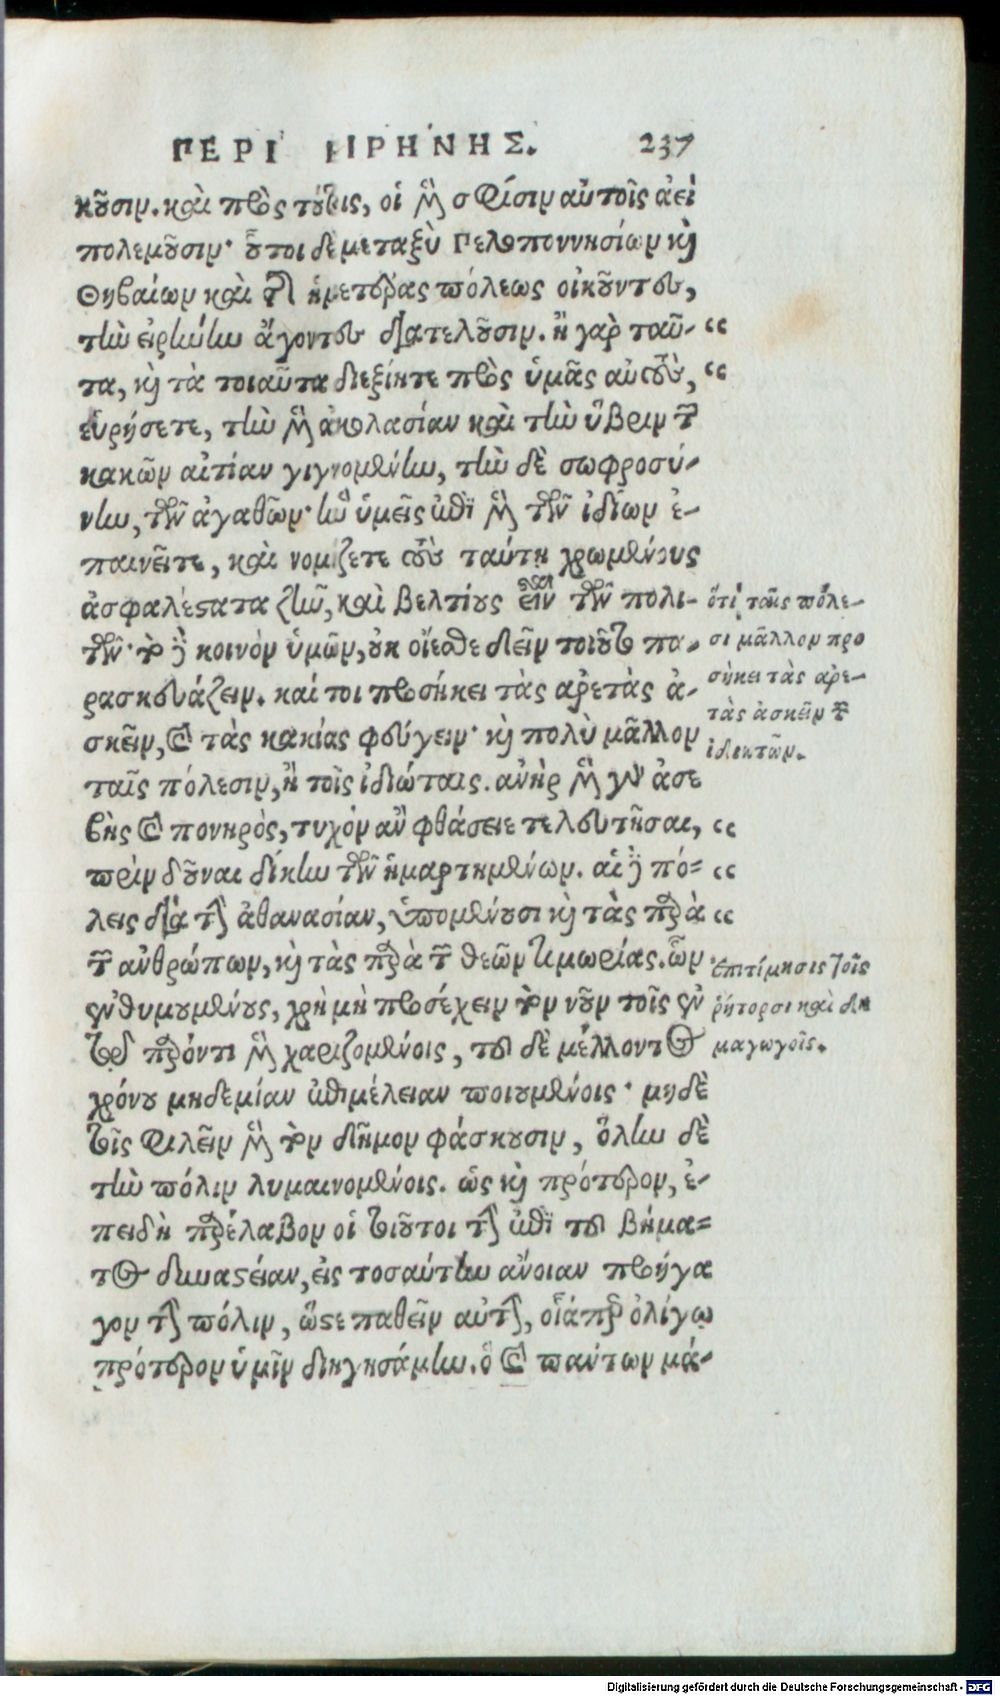 ΠΕΡΙ ΕΙΡΗΝΗΣ. 237
κοῦσιν. καὶ πρὸς τούτοις, οἱ μὲν σφίσιν αὐτοῖς ἀεὶ
πολεμοῦσιν· οὗτοι δὲ μεταξὺ Πελοποννησίων καὶ
Θηβαίων καὶ τῆς ἡμετέρας πόλεως οἰκοῦντες,
τὴν εἰρήνην ἄγοντες διατελοῦσιν. ἢ γὰρ ταῦ- “
τα, καὶ τὰ τοιαῦτα διεξίητε πρὸς ὑμᾶς αὐτοὺς, “
εὑρήσετε, τὴν μὲν ἀκολασίαν καὶ τὴν ὕβριν τῶν
κακῶν αἰτίαν γιγνομένην, τὴν δὲ σωφροσύ-
νην, τῶν ἀγαθῶν· ἣν ὑμεῖς ἐπὶ μὲν τῶν ἰδίων ἐ-
παινεῖτε, καὶ νομίζετε τοὺς ταύτῃ χρωμένους
ἀσφαλέστατα ζῆν, καὶ βελτίους εἶναι τῶν πολι-
τῶν· τὸ δὲ κοινὸν ὑμῶν, οὐκ οἴεσθε δεῖν τοιοῦτο πα-
ρασκευάζειν. καί τοι προσήκει τὰς ἀρετὰς ἀ-
σκεῖν, καὶ τὰς κακίας φεύγειν· καὶ πολὺ μᾶλλον
ταῖς πόλεσιν, ἢ τοῖς ἰδιώταις. ἀνὴρ μὲν γὰρ ἀσε
βὴς καὶ πονηρὸς, τυχὸν ἂν φθάσειε τελευτῆσαι, “
πρὶν δοῦναι δίκην τῶν ἡμαρτημένων. αἱ δὲ πό- “
λεις διὰ τὴν ἀθανασίαν, ὑπομένουσι καὶ τὰς παρὰ “
τῶν ἀνθρώπων, καὶ τὰς παρὰ τῶν θεῶν τιμωρίας. ὧν
ἐνθυμουμένους, χρὴ μὴ προσέχειν τὸν νοῦν τοῖς ἐν
τῷ παρόντι μὲν χαριζομένοις, τοῦ δὲ μέλλοντος
χρόνου μηδεμίαν ἐπιμέλειαν ποιουμένοις· μηδὲ
τοῖς φιλεῖν μὲν τὸν δῆμον φάσκουσιν, ὅλην δὲ
τὴν πόλιν λυμαινομένοις. ὡς καὶ πρότερον, ἐ-
πειδὴ παρέλαβον οἱ τοιοῦτοι τὴν ἐπὶ τοῦ βήμα-
τος δυναστείαν, εἰς τοσαύτην ἄνοιαν προήγα
γον τὴν πόλιν, ὥστε παθεῖν αὐτὴν, οἷάπερ ὀλίγῳ
πρότερον ὑμῖν διηγησάμην. ὃ καὶ πάντων μά-
ὅτι ταῖς πόλε-
σι μᾶλλον προ
σήκει τὰς ἀρε-
τὰς ἀσκεῖν τῶν
ἰδιωτῶν.
Ἐπιτίμησις τοῖς
ῥήτορσι καὶ δη
μαγωγοῖς.
Digitalisierung gefördert durch die Deutsche Forschungsgemeinschaft - DFG